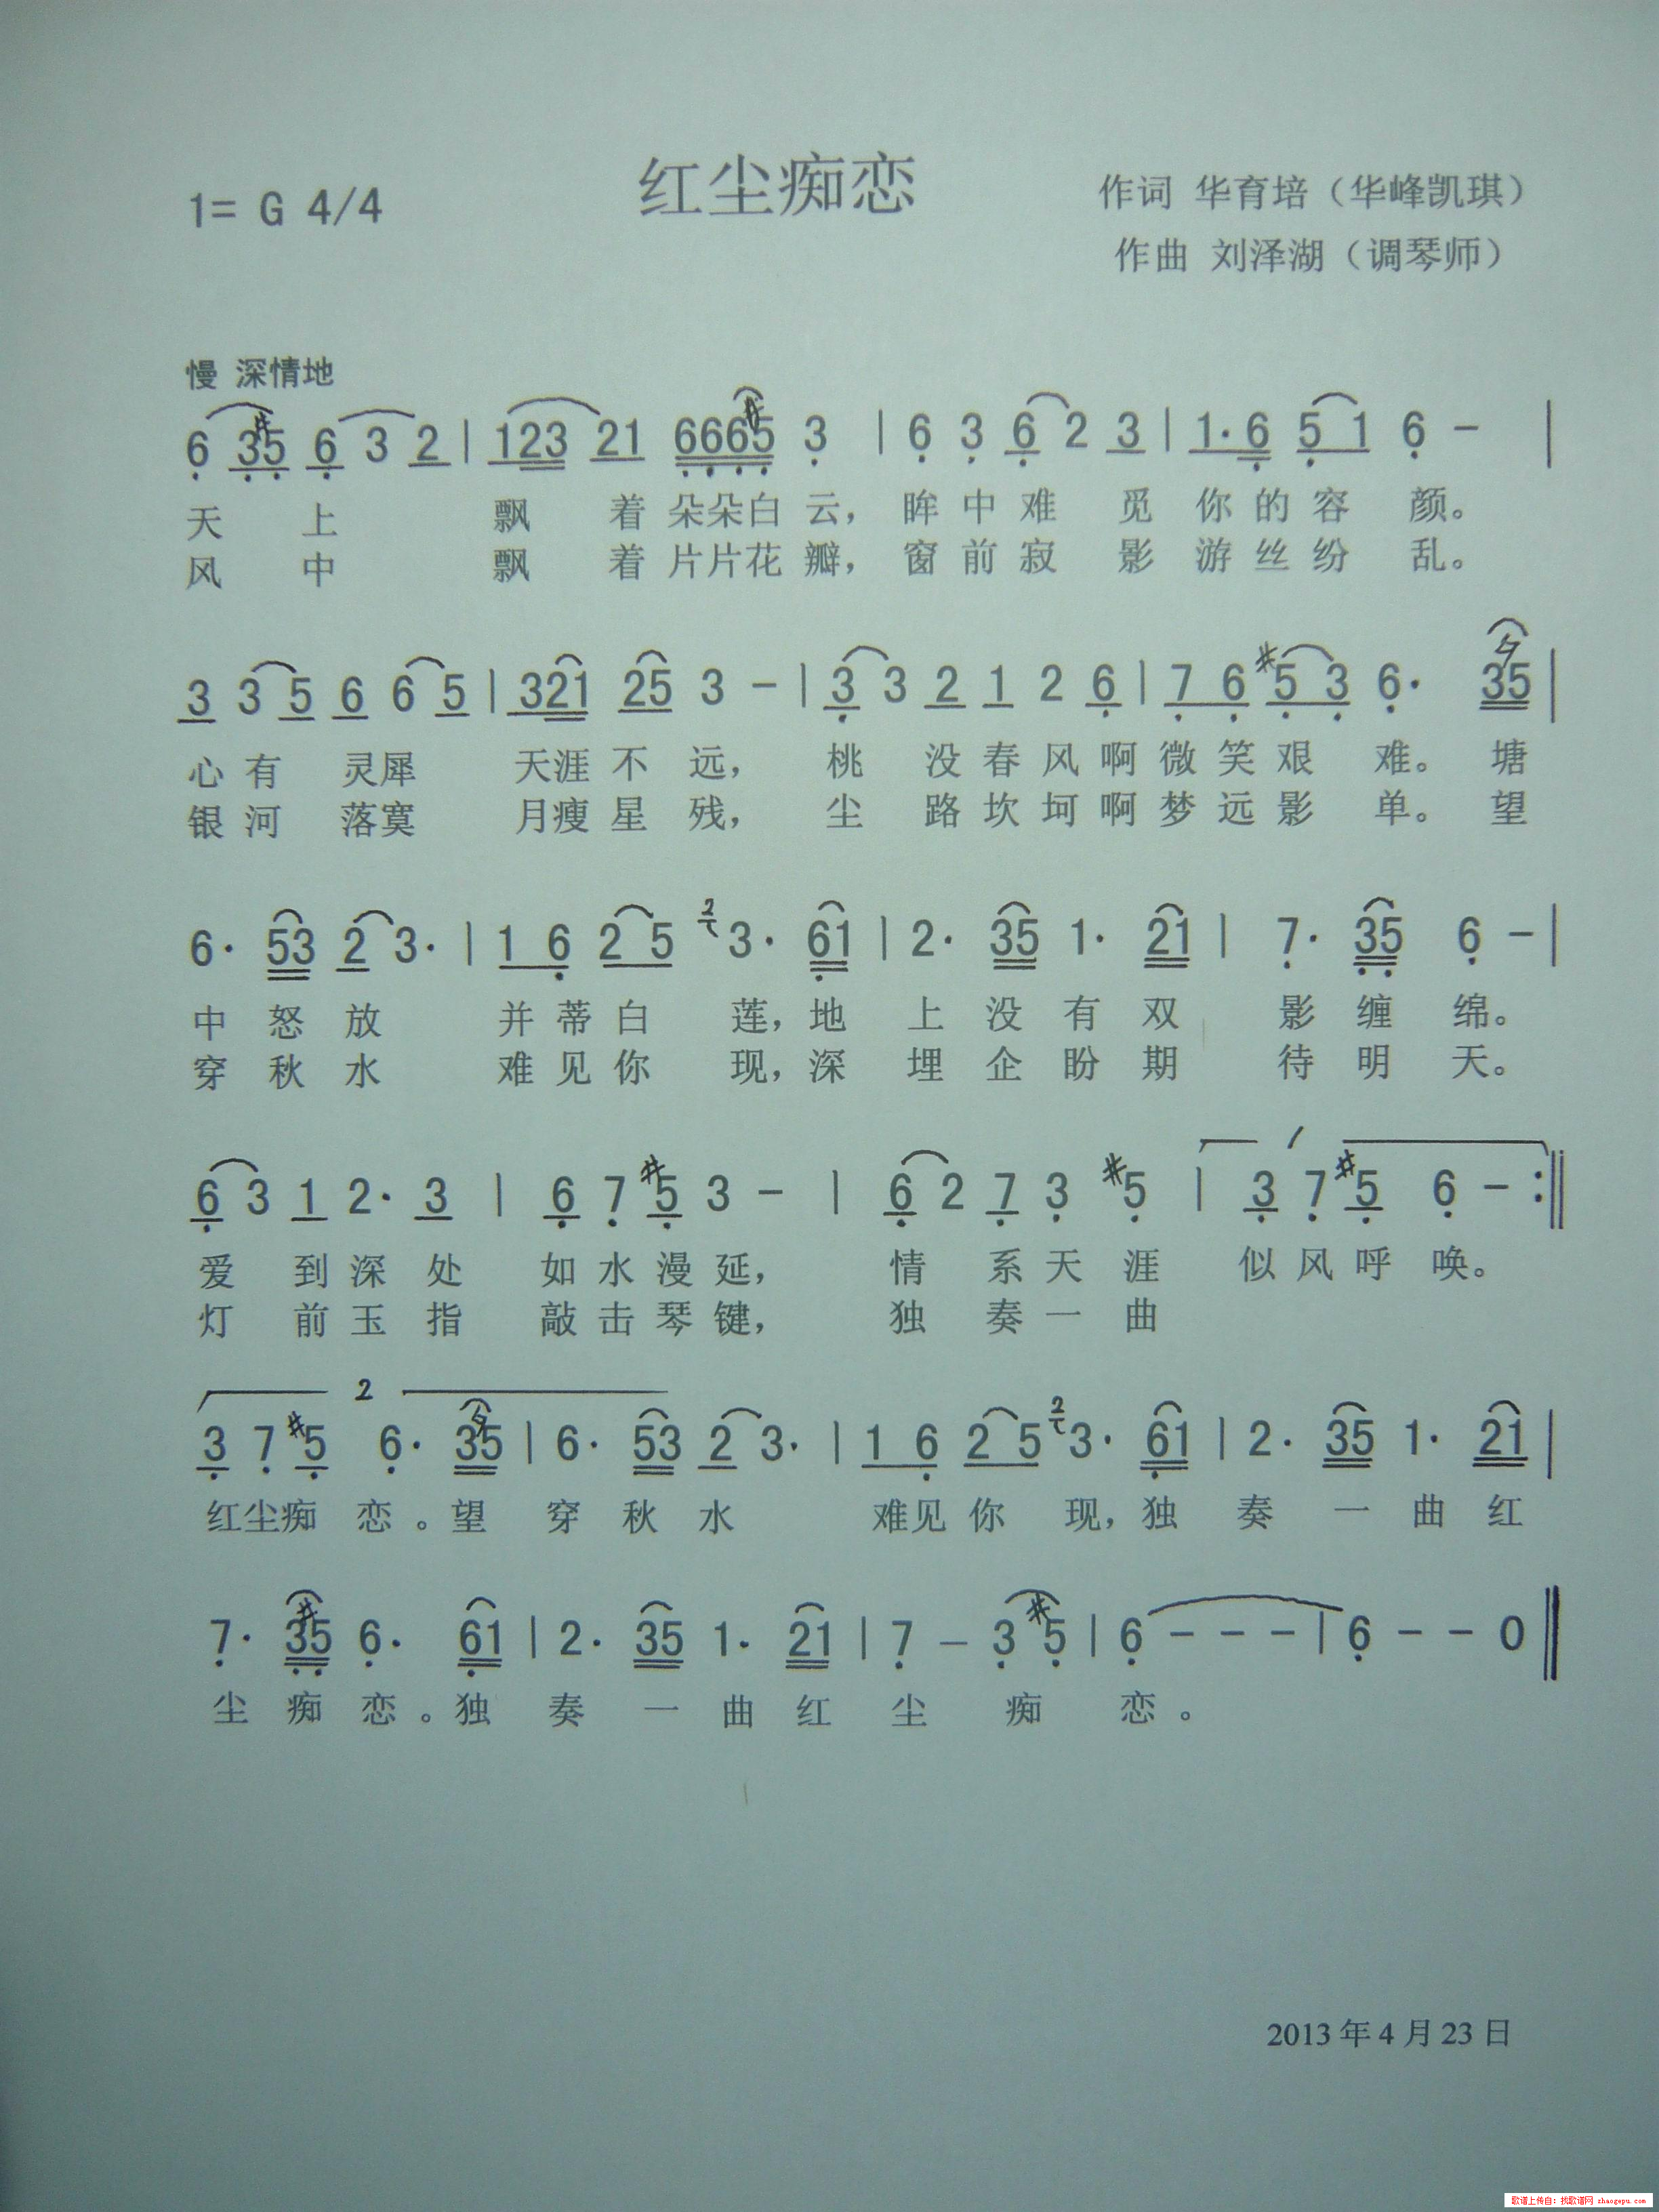 红尘痴恋
1= G 4/4
作词 华育培（华峰凯琪）
作曲 刘泽湖（调琴师）
慢 深情地
6 3#5 6 3 2 | 123 21 666#5 3 | 6 3 6 2 3 | 1·6 5 1 6 - |
天 上 飘 着 朵朵白 云， 眸 中 难 觅 你 的 容 颜。
风 中 飘 着 片片花 瓣， 窗 前 寂 影 游 丝 纷 乱。
3 3 5 6 6 5 | 321 25 3 - | 3 3 2 1 2 6 | 7 6 #5 3 6· 35 |
心 有 灵犀 天涯 不 远， 桃 没 春 风 啊 微 笑 艰 难。 塘
银 河 落寞 月瘦 星 残， 尘 路 坎 坷 啊 梦 远 影 单。 望
6· 53 2 3· | 1 6 2 5 2 3· 61 | 2· 35 1· 21 | 7· 35 6 - |
中 怒 放 并 蒂 白 莲，地 上 没 有 双 影 缠 绵。
穿 秋 水 难 见 你 现，深 埋 企 盼 期 待 明 天。
6 3 1 2· 3 | 6 7 #5 3 - | 6 2 7 3 #5 | 1 3 7 #5 6 - :||
爱 到 深 处 如 水 漫 延， 情 系 天 涯 似 风 呼 唤。
灯 前 玉 指 敲 击 琴 键， 独 奏 一 曲
2
3 7 #5 6· 35 | 6· 53 2 3· | 1 6 2 5 2 3· 61 | 2· 35 1· 21 |
红尘痴 恋 。望 穿 秋 水 难见 你 现，独 奏 一 曲 红
7· 3#5 6· 61 | 2· 35 1· 21 | 7 - 3 #5 | 6 - - - | 6 - - 0 ||
尘 痴 恋 。独 奏 一 曲 红 尘 痴 恋 。
2013 年 4 月 23 日
歌谱上传自：找歌谱网 zhaogepu.com